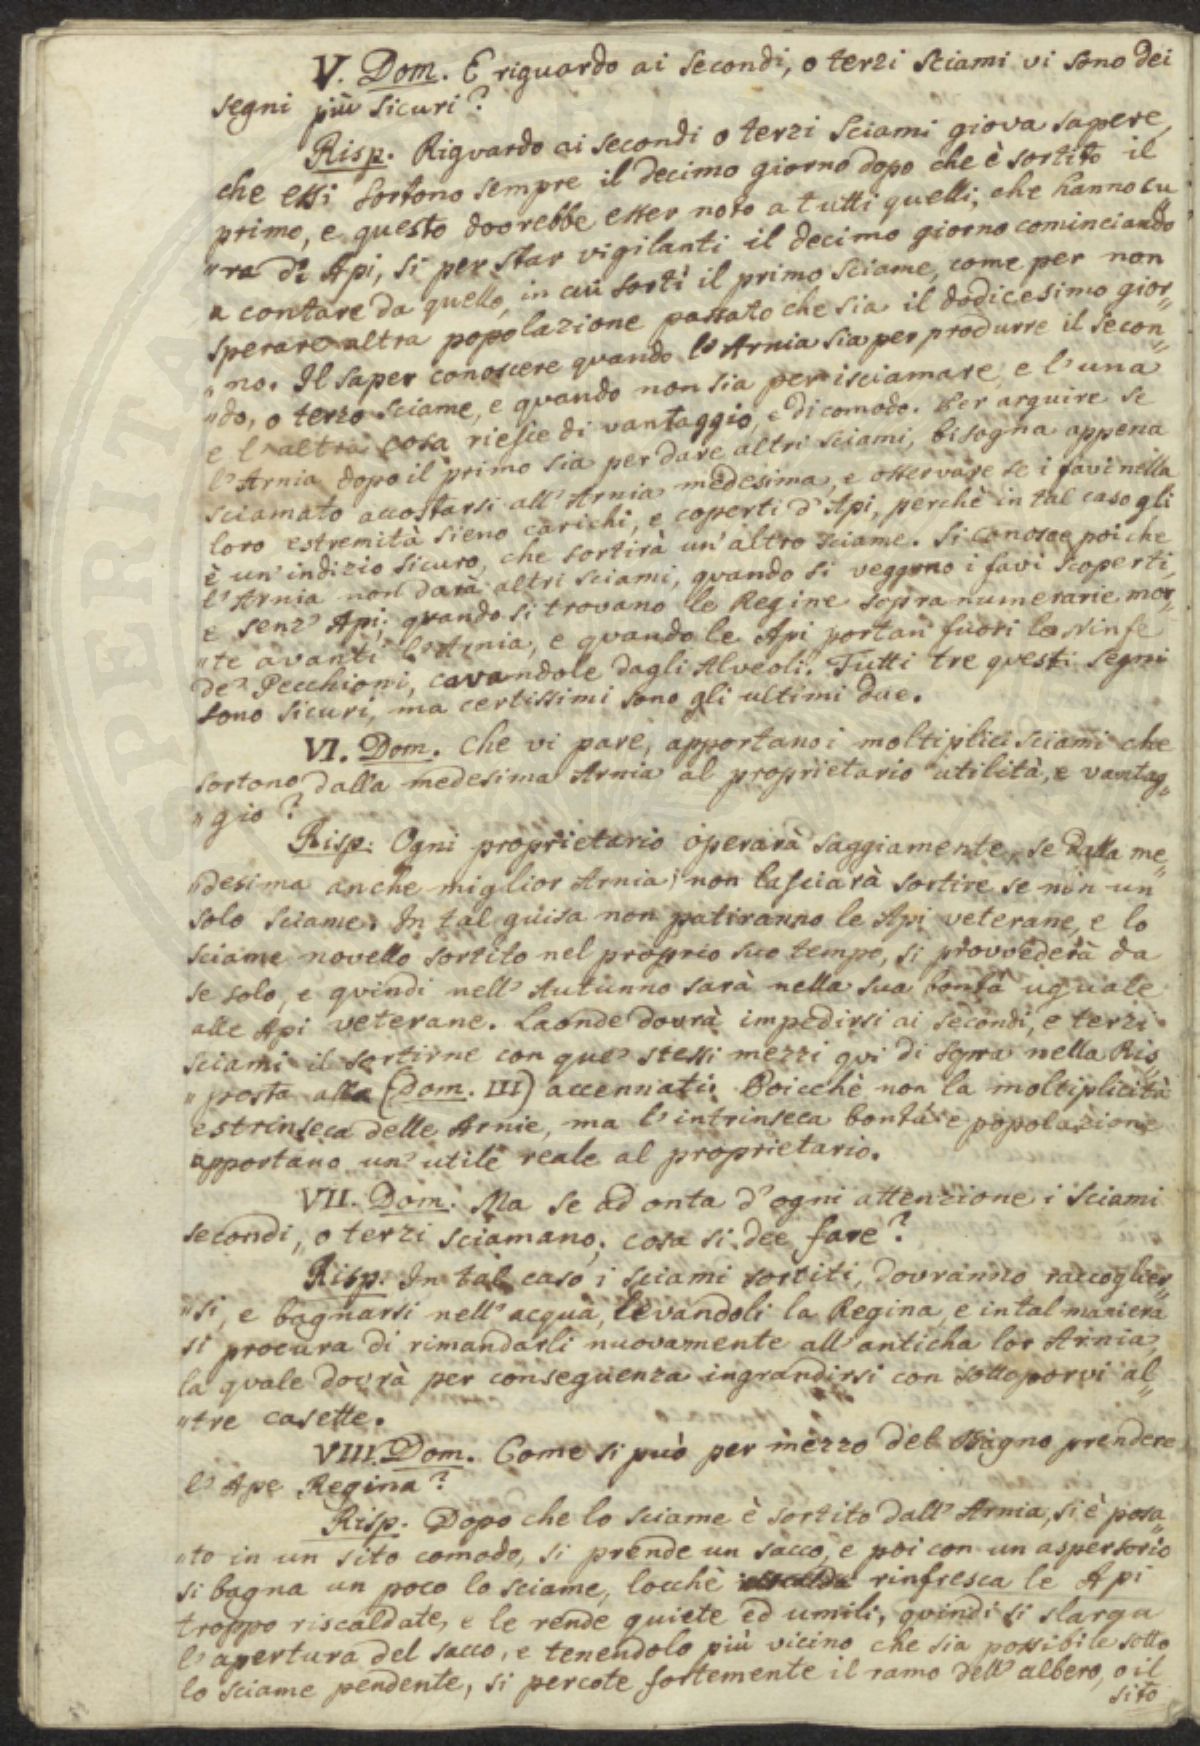 V. Dom. E riguardo ai secondi, o terzi sciami vi sono dei
segni più sicuri?
Risp. Riguardo ai secondi o terzi sciami giova sapere,
che essi sortono sempre il decimo giorno dopo che è sortito il
primo, e questo dovrebbe esser noto a tutti quelli, che hanno cu„
„ra di Api, si per star vigilanti il decimo giorno cominciando
a contare da quello, in cui sortì il primo sciame, come per non
sperare altra popolazione passato che sia il dodicesimo gior„
„no. Il saper conoscere quando l'Arnia sia per produrre il secon„
„do, o terzo sciame, e quando non sia per isciamare, e l'una
e l'altra cosa riesce di vantaggio, e di comodo. Per arguire se
l'Arnia dopo il primo sia per dare altri sciami, bisogna appena
sciamato accostarsi all'Arnia medesima, e osservare se i favi nella
loro estremità sieno carichi, e coperti d'Api, perchè in tal caso gli
è un'indizio sicuro, che sortirà un'altro sciame. Si conosce poi che
l'Arnia non darà altri sciami, quando si veggono i favi scoperti,
e senz'Api; quando si trovano le Regine sopranumerarie mor„
„te avanti l'Arnia, e quando le Api portan fuori le Ninfe
de' Pecchioni, cavandole dagli Alveoli. Tutti tre questi segni
sono sicuri, ma certissimi sono gli ultimi due.
VI. Dom. Che vi pare, apportano i moltiplici sciami che
sortono dalla medesima Arnia al proprietario utilità, e vantag„
„gio?
Risp. Ogni proprietario operarà saggiamente, se dalla me„
„desima anche miglior Arnia, non lasciarà sortire se non un
solo sciame. In tal guisa non patiranno le Api veterane, e lo
sciame novello sortito nel proprio suo tempo, si provvederà da
se solo, e quindi nell'Autunno sarà nella sua bontà uguale
alle Api veterane. Laonde dovrà impedirsi ai secondi, e terzi
sciami il sortirne con que' stessi mezzi qui di sopra nella Ris„
„posta alla (Dom. III) accennati. Poicchè non la moltiplicità
estrinseca delle Arnie, ma l'intrinseca bontà e popolazione
apportano un'utile reale al proprietario.
VII. Dom. Ma se ad onta d'ogni attenzione i sciami
secondi, o terzi sciamano, cosa si dee fare?
Risp. In tal caso i sciami sortiti, dovranno raccoglier„
„si, e bagnarsi nell'acqua, levandoli la Regina, e in tal maniera
si procura di rimandarli nuovamente all'anticha lor Arnia,
la quale dovrà per conseguenza ingrandirsi con sottoporvi al„
„tre casette.
VIII. Dom. Come si può per mezzo del Bagno prendere
l'Ape Regina?
Risp. Dopo che lo sciame è sortito dall'Arnia, si è posa„
„to in un sito comodo, si prende un sacco, e poi con un aspersorio
si bagna un poco lo sciame, locchè rinfresca le Api
troppo riscaldate, e le rende quiete ed umili, quindi si slarga
l'apertura del sacco, e tenendolo più vicino che sia possibile sotto
lo sciame pendente, si percote fortemente il ramo dell'albero, o il
sito
SPERITAT